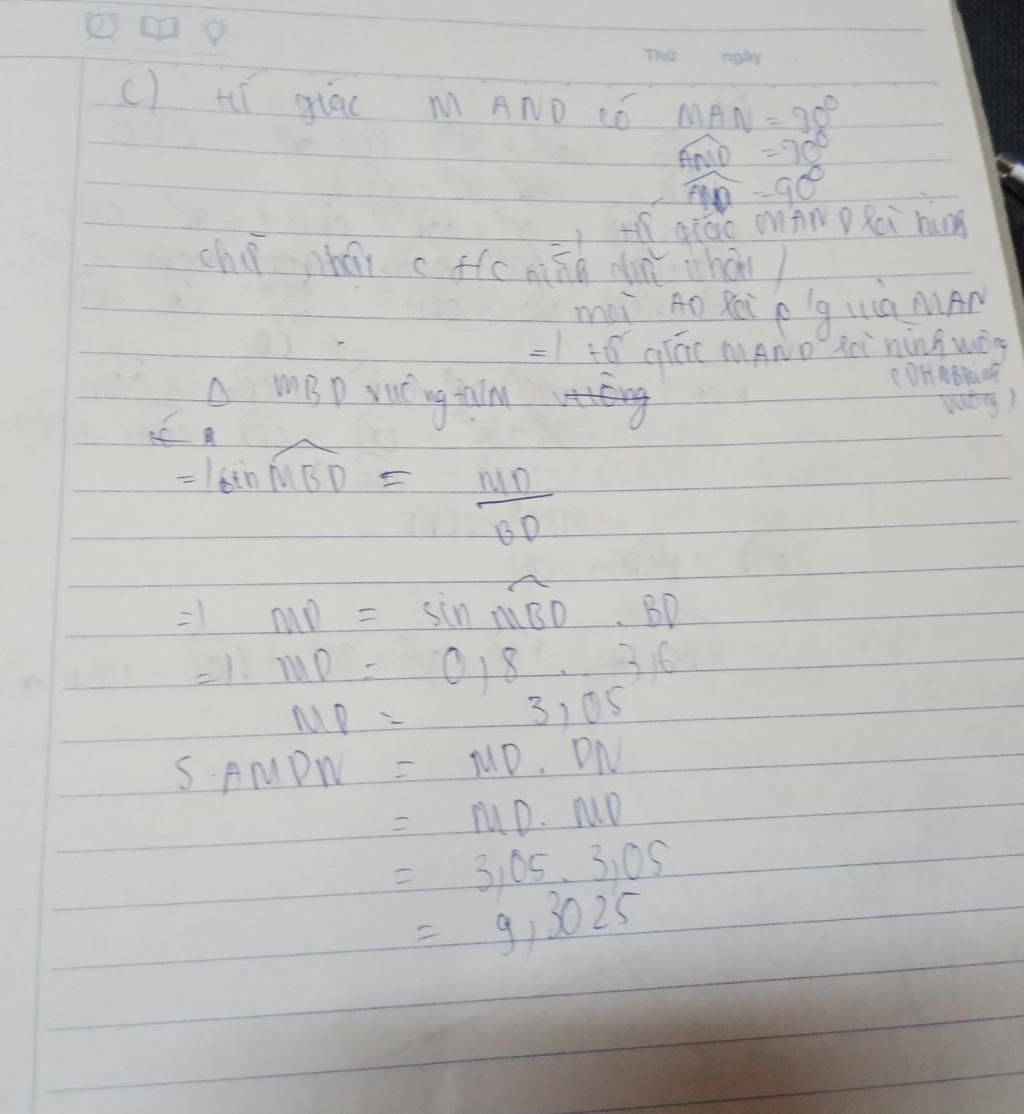 Thứ ngày
c) tứ giác MAND có MAN = 90⁰
AMD = 90⁰
AND = 90⁰
=) tứ giác MAND là hình
chữ nhật
mà AD là p/g MAN
=) tứ giác MAND là hình vuông
Δ MBD vuông tại M vuông
=) sin MBD = MD
BD
=) MD = sin MBD . BD
=) MD = 0,8 . 3,6
MD = 3,05
S.AMDN = MD. DN
= MD. MD
= 3,05. 3,05
= 9,3025